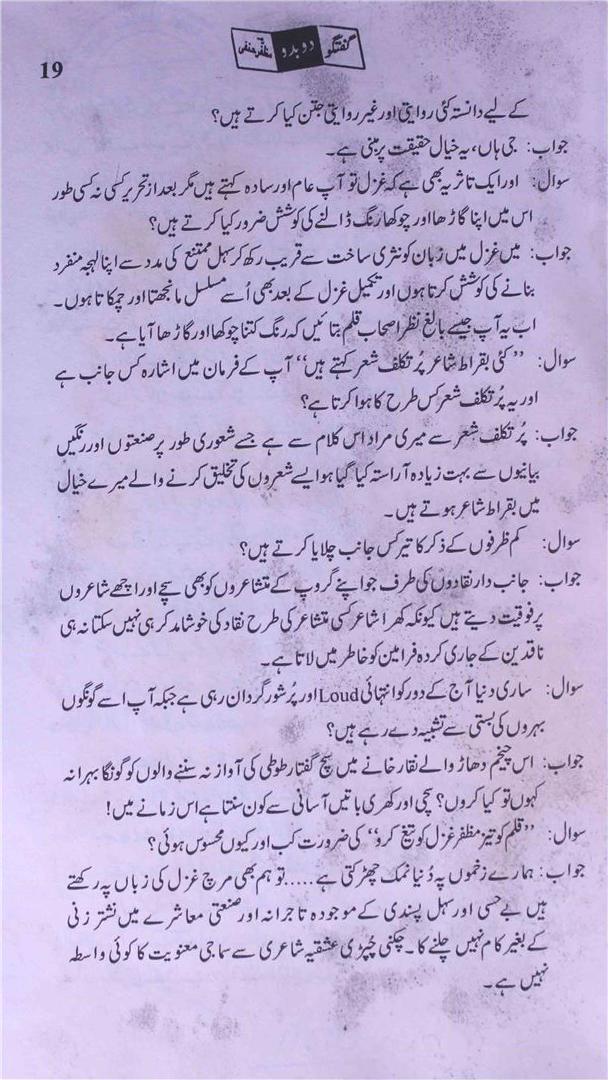 گفتگو دوبدو مظفر حنفی
19
کے لیے دانستہ کئی روایتی اور غیر روایتی جتن کیا کرتے ہیں؟
جواب: جی ہاں، یہ خیال حقیقت پر مبنی ہے۔
سوال: اور ایک تاثر یہ بھی ہے کہ غزل تو آپ عام اور سادہ کہتے ہیں مگر بعد از تحریر کسی نہ کسی طور
اس میں اپنا گاڑھا اور چوکھا رنگ ڈالنے کی کوشش ضرور کیا کرتے ہیں؟
جواب: میں غزل میں زبان کو نثری ساخت سے قریب رکھ کر سہل ممتنع کی مدد سے اپنا لہجہ منفرد
بنانے کی کوشش کرتا ہوں اور تکمیل غزل کے بعد بھی اُسے مسلسل مانجھتا اور چمکاتا ہوں۔
اب یہ آپ جیسے بالغ نظر اصحاب قلم بتائیں کہ رنگ کتنا چوکھا اور گاڑھا آیا ہے۔
سوال: ”کئی بقراط شاعر پُر تکلف شعر کہتے ہیں“ آپ کے فرمان میں اشارہ کس جانب ہے
اور یہ پُر تکلف شعر کس طرح کا ہوا کرتا ہے؟
جواب: پُر تکلف شعر سے میری مراد اس کلام سے ہے جسے شعوری طور پر صنعتوں اور رنگیں
بیانیوں سے بہت زیادہ آراستہ کیا گیا ہو ایسے شعروں کی تخلیق کرنے والے میرے خیال
میں بقراط شاعر ہوتے ہیں۔
سوال: کم ظرفوں کے ذکر کا تیر کس جانب چلایا کرتے ہیں؟
جواب: جانب دار نقادوں کی طرف جو اپنے گروپ کے متشاعروں کو بھی سچے اور اچھے شاعروں
پر فوقیت دیتے ہیں کیونکہ کھرا شاعر کسی متشاعر کی طرح نقاد کی خوشامد کر ہی نہیں سکتا نہ ہی
ناقدین کے جاری کردہ فرامین کو خاطر میں لاتا ہے۔
سوال: ساری دنیا آج کے دور کو انتہائی Loud اور پُر شور گردان رہی ہے جبکہ آپ اسے گونگوں
بہروں کی بستی سے تشبیہ دے رہے ہیں؟
جواب: اس چیخم دھاڑ والے نقار خانے میں سچ گفتار طوطی کی آواز نہ سننے والوں کو گونگا بہرا نہ
کہوں تو کیا کروں؟ سچی اور کھری باتیں آسانی سے کون سنتا ہے اس زمانے میں!
سوال: ”قلم کو تیز مظفر غزل کو تیغ کرو“ کی ضرورت کب اور کیوں محسوس ہوئی؟
جواب: ہمارے زخموں پہ دُنیا نمک چھڑکتی ہے.....تو ہم بھی مرچ غزل کی زباں پہ رکھتے
ہیں بے حسی اور سہل پسندی کے موجودہ تاجرانہ اور صنعتی معاشرے میں نشتر زنی
کے بغیر کام نہیں چلنے کا۔ چکنی چُپڑی عشقیہ شاعری سے سماجی معنویت کا کوئی واسطہ
نہیں ہے۔